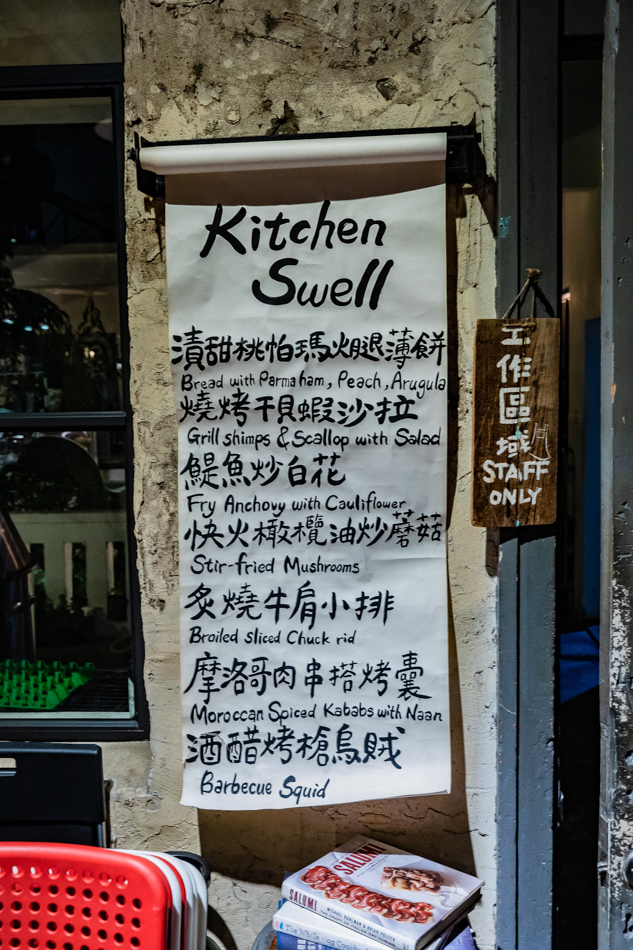 Kitchen
Swell
漬甜桃帕瑪火腿薄餅
Bread with Parma ham, Peach, Arugula
燒烤干貝蝦沙拉
Grill shimps & Scallop with Salad
鯷魚炒白花
Fry Anchovy with Cauliflower
快火橄欖油炒蘑菇
Stir-fried Mushrooms
炙燒牛肩小排
Broiled sliced Chuck rid
摩洛哥肉串搭烤囊
Moroccan Spiced Kababs with Naan
酒醋烤槍烏賊
Barbecue Squid
工作區域
STAFF
ONLY
SALUMI
SALUMI
MICHAEL RUHLMAN & BRIAN POLCYN
The White